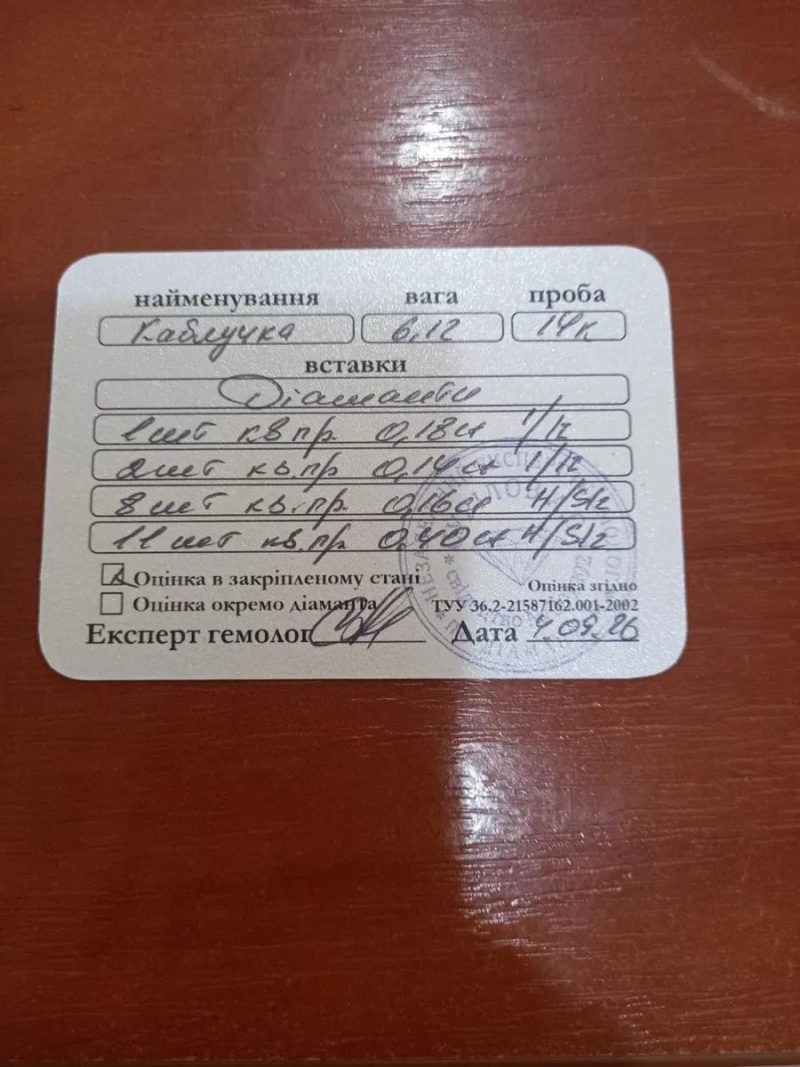 найменування вага проба
Каблучка 6,12 14к
вставки
Діаманти
1 шт кв.пр. 0,18ct I/I2
2 шт кв.пр 0,14ct I/I2
8 шт кв.пр. 0,16ct H/SI2
11 шт кв.пр. 0,40ct H/SI2
Оцінка в закріпленому стані
Оцінка згідно
Оцінка окремо діаманта
ТУУ 36.2-21587162.001-2002
Експерт гемолог Дата 4.09.26